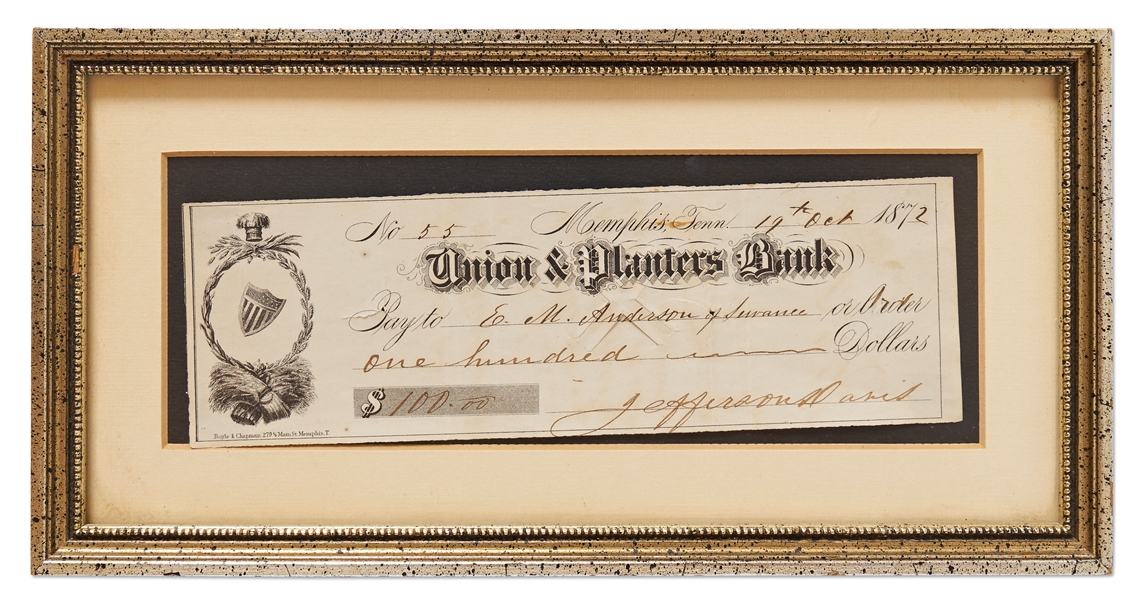 No 55 Memphis, Tenn. 19th Oct 1872
Union & Planters Bank
Pay to E. M. Anderson of Sewanee or Order
one hundred Dollars
$ 100.00 Jefferson Davis
Boyle & Chapman 279½ Main St. Memphis, T.